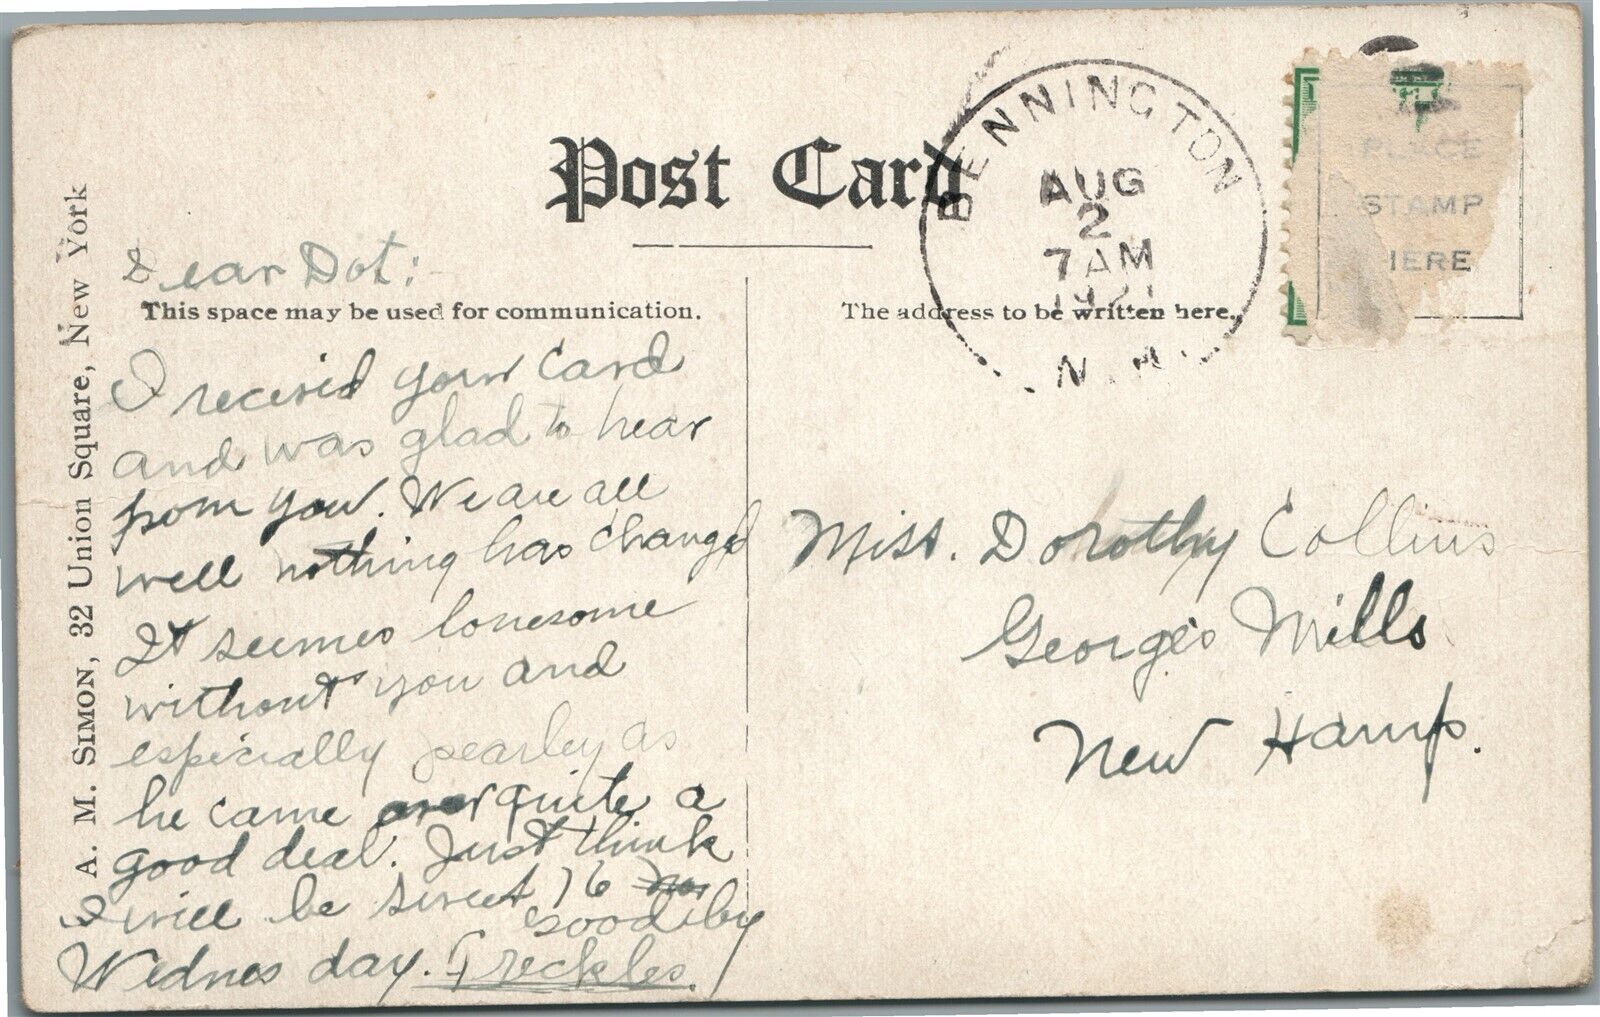 Post Card
BENNINGTON
AUG
2
7 AM
1921
N.H.
PLACE
STAMP
HERE
A. M. SIMON, 32 Union Square, New York
Dear Dot:
This space may be used for communication.
I received your card
and was glad to hear
from you. We are all
well nothing has changed
It seemes lonesome
without you and
especially pearley as
he came over quite a
good deal. Just think
I will be sweet 16
Wednesday. Good by
Freckles.
The address to be written here.
Miss. Dorothy Collins
George's Mills
New Hamp.